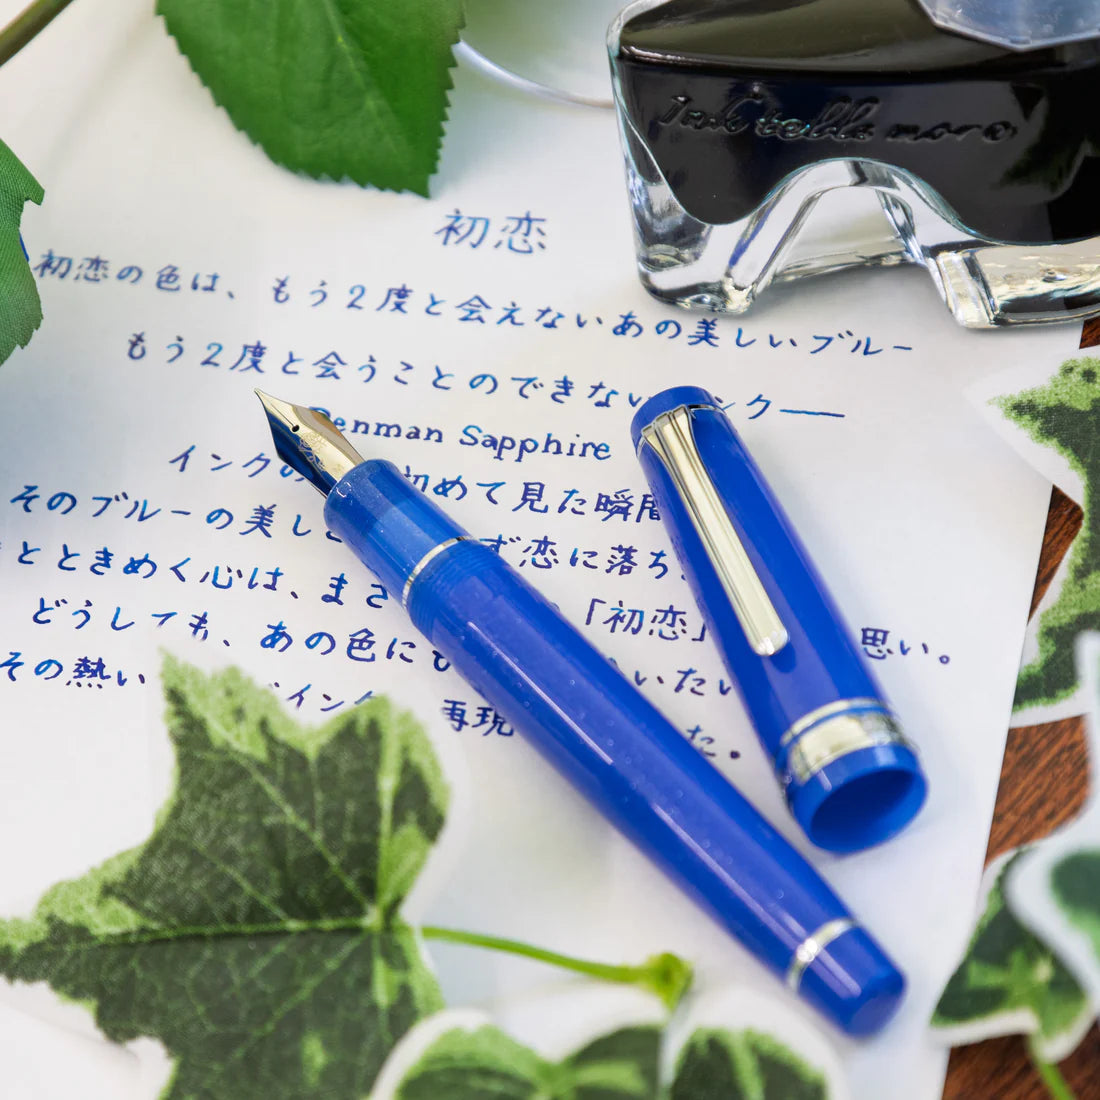 Ink tells more
初恋
初恋の色は、もう2度と会えないあの美しいブルー
もう2度と会うことのできない ンク——
Penman Sapphire
インクの 初めて見た瞬間
そのブルーの美し ず恋に落ち
とときめく心は、まさ 「初恋」 思い。
どうしても、あの色に いたい
その熱い インク 再現 た。